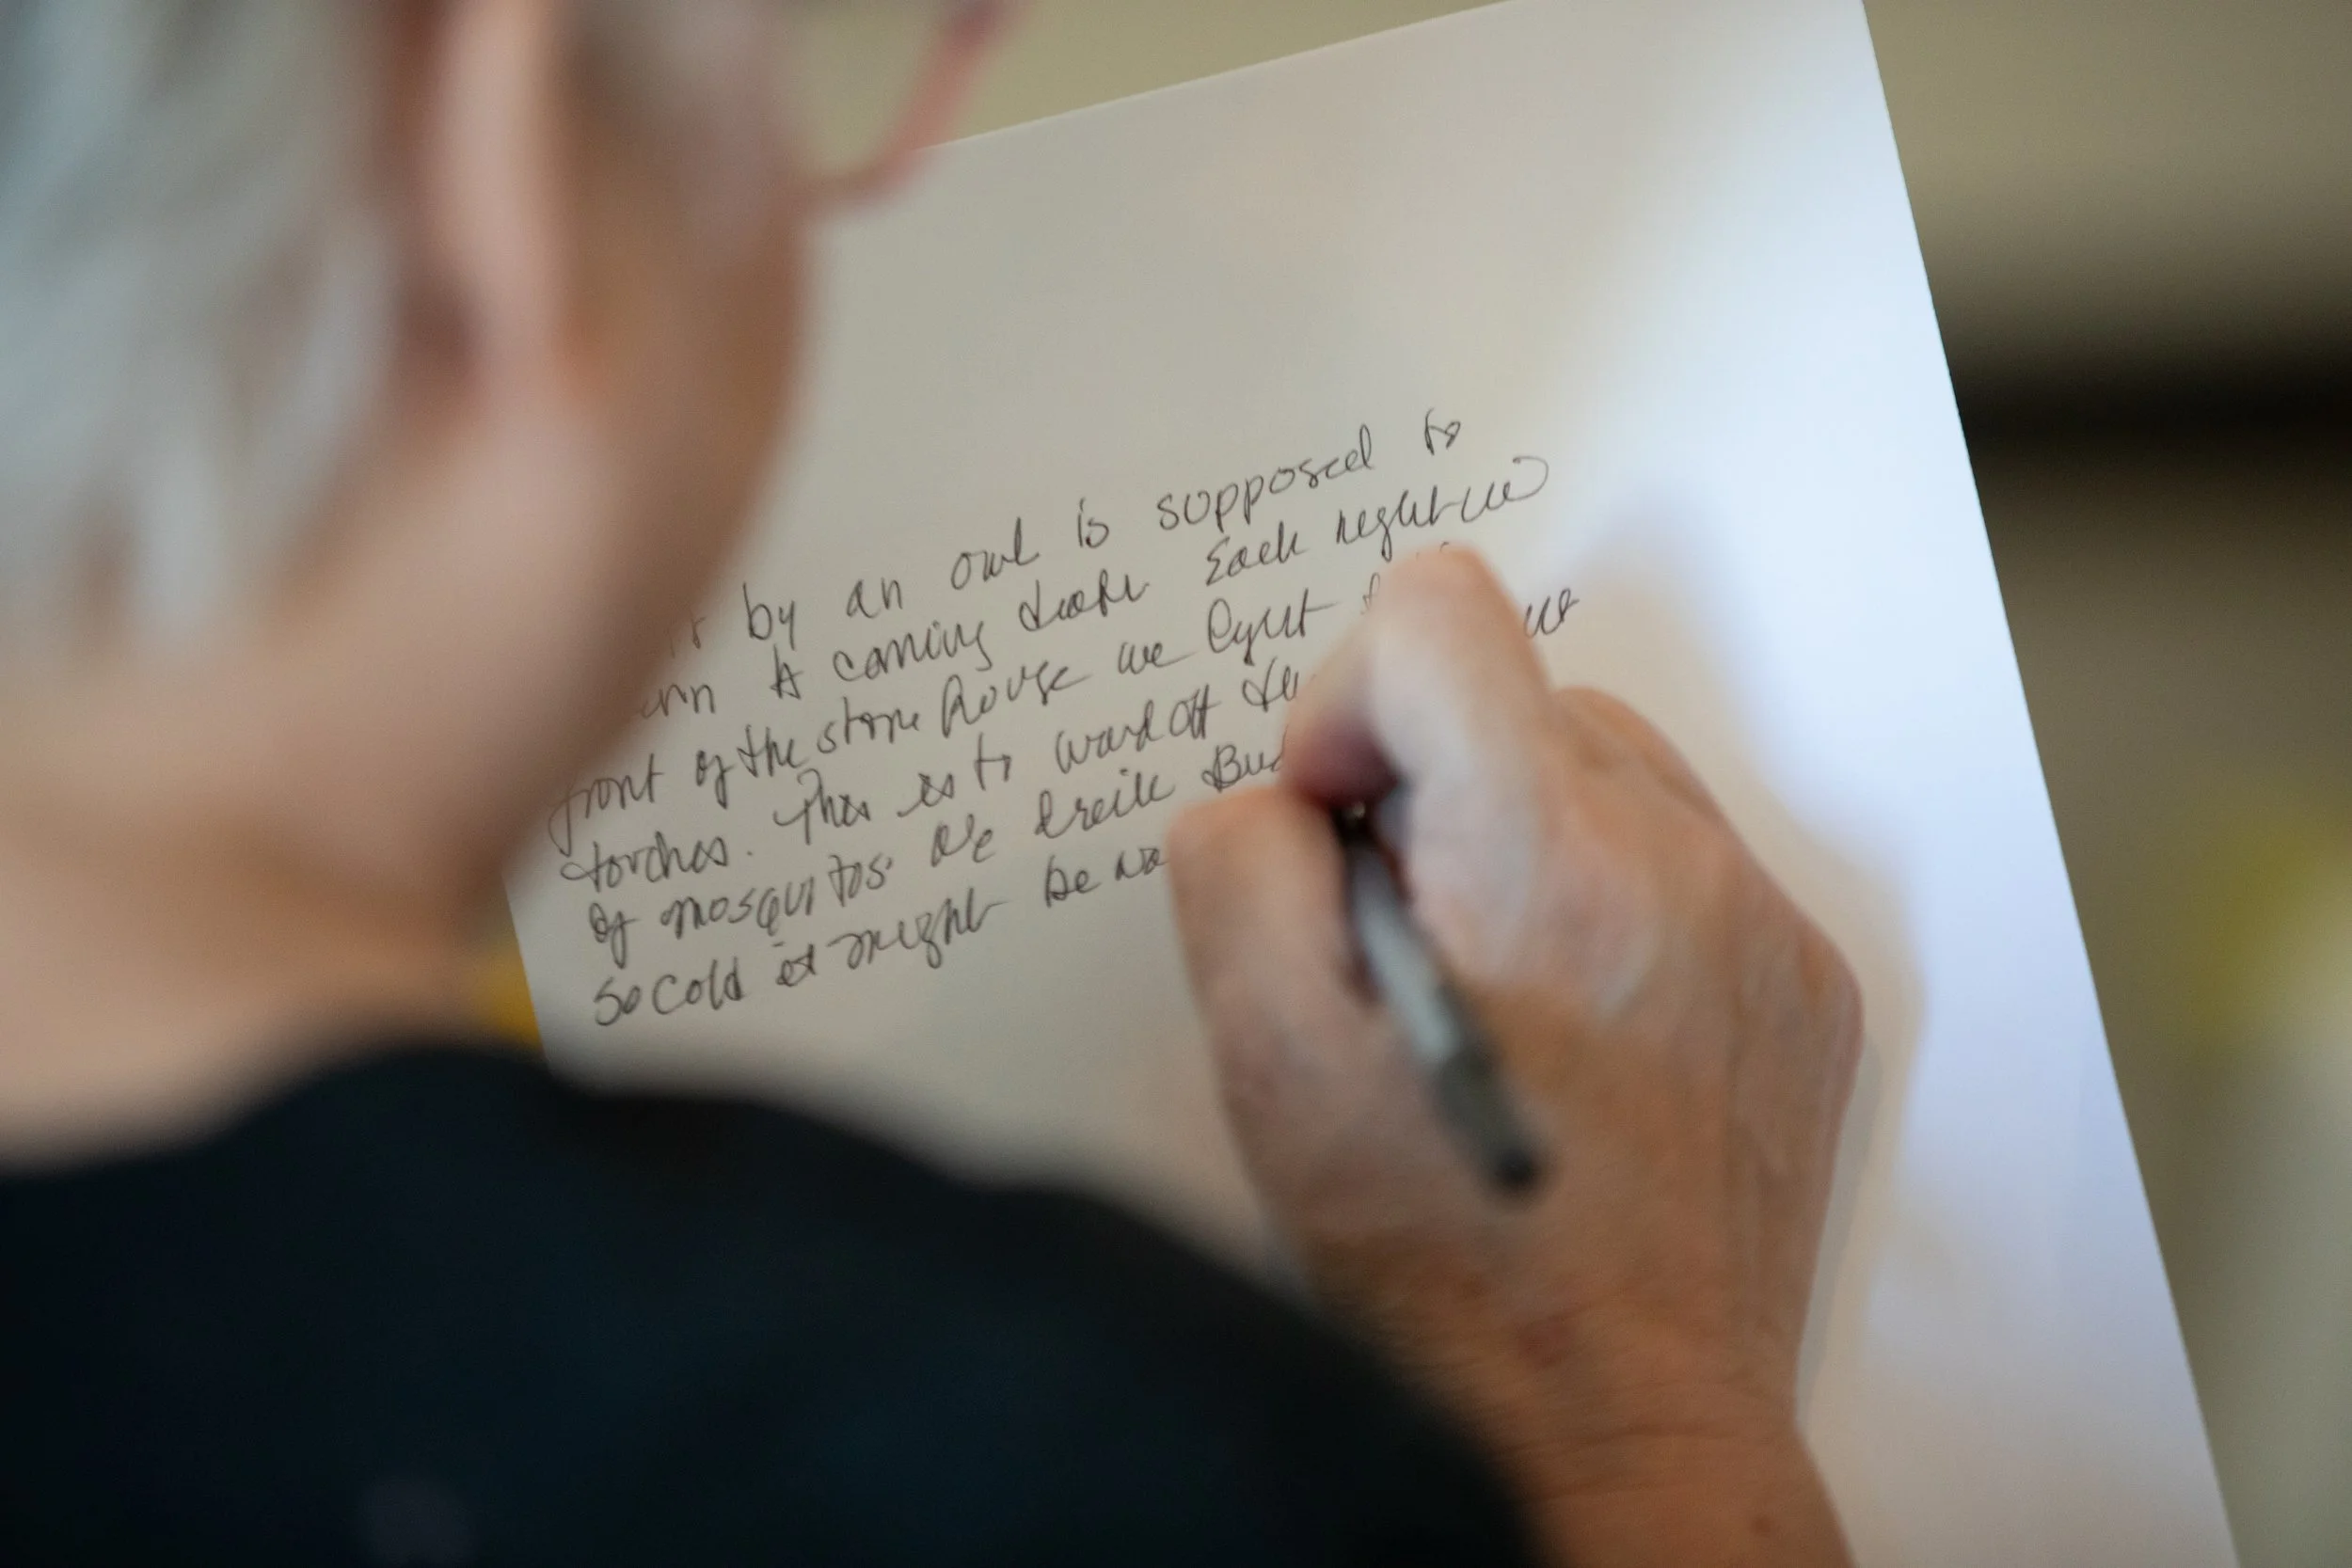 by an owl is supposed to
a coming death Each night we
front of the stone house we light
torches. This is to ward off
of mosquitos We drink
So cold it might be